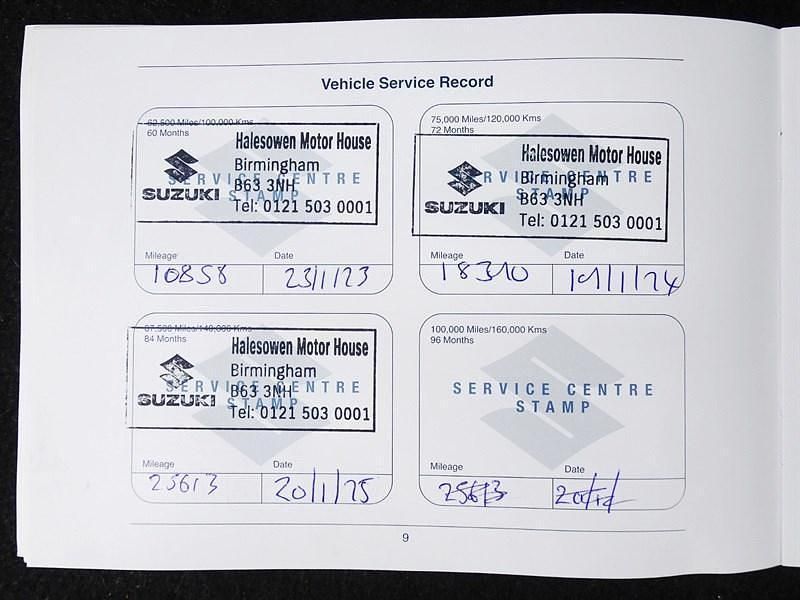 Vehicle Service Record
62,500 Miles/100,000 Kms
60 Months
Halesowen Motor House
Birmingham
B63 3NH
Tel: 0121 503 0001
SUZUKI
SERVICE CENTRE
STAMP
Mileage Date
10858 23/1/23
75,000 Miles/120,000 Kms
72 Months
Halesowen Motor House
Birmingham
B63 3NH
Tel: 0121 503 0001
SUZUKI
SERVICE CENTRE
STAMP
Mileage Date
18310 19/1/24
87,500 Miles/140,000 Kms
84 Months
Halesowen Motor House
Birmingham
B63 3NH
Tel: 0121 503 0001
SUZUKI
SERVICE CENTRE
STAMP
Mileage Date
25613 20/1/25
100,000 Miles/160,000 Kms
96 Months
SERVICE CENTRE
STAMP
Mileage Date
25613
9